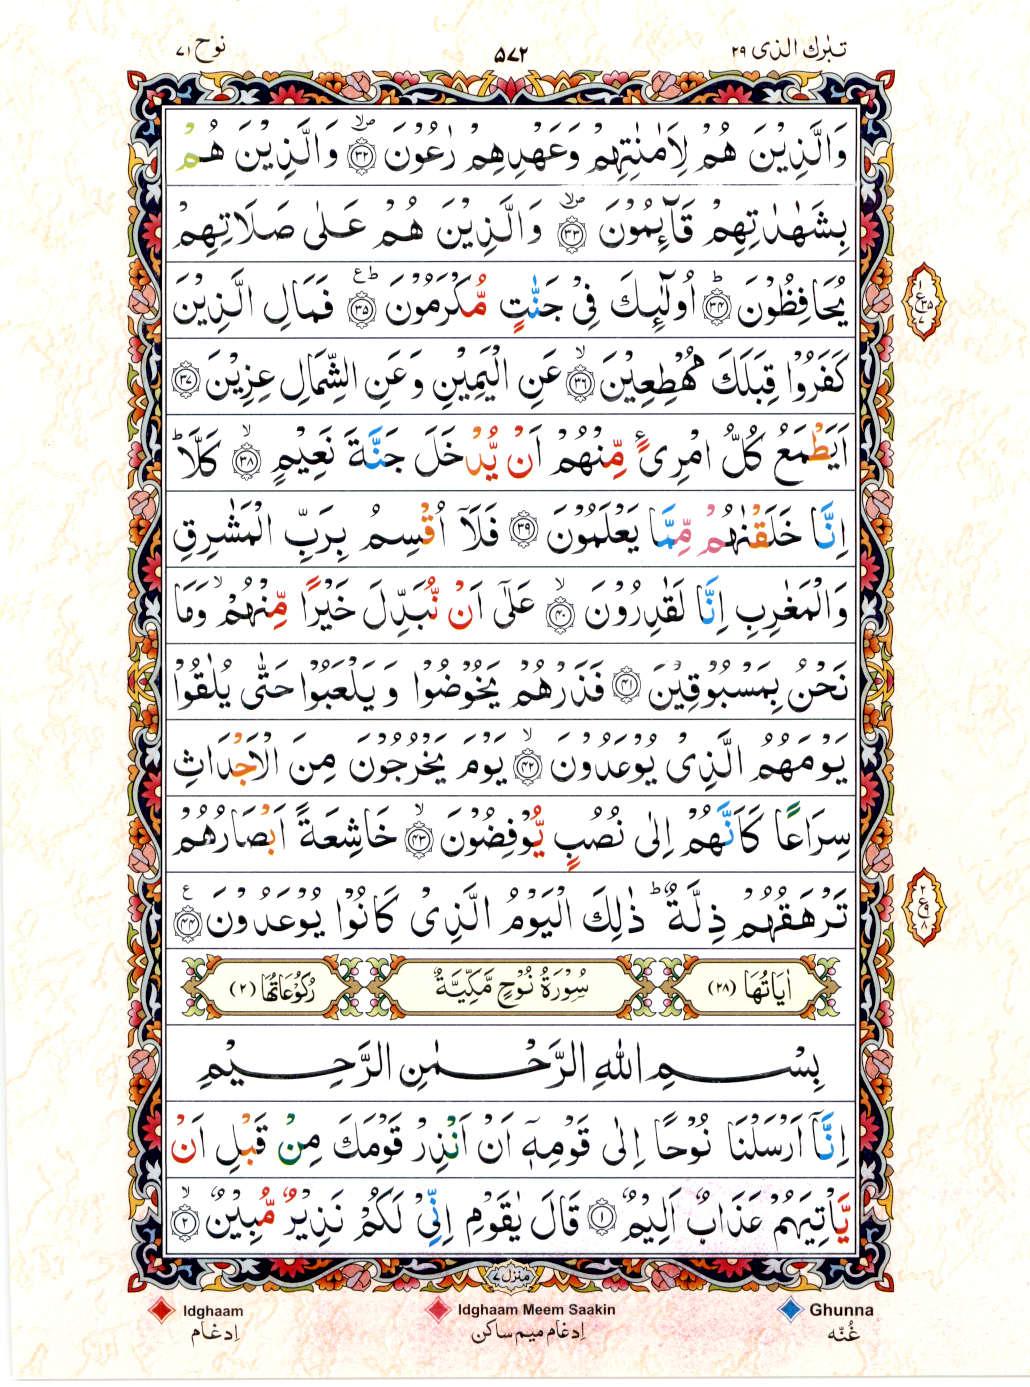 تبٰرك الذى ٢٩
۵۷۲
نوح ٧١
وَالَّذِيْنَ هُمْ لِاَمٰنٰتِهِمْ وَعَهْدِهِمْ رٰعُوْنَ ﴿٣٢﴾ وَالَّذِيْنَ هُمْ
بِشَهٰدٰتِهِمْ قَآئِمُوْنَ ﴿٣٣﴾ وَالَّذِيْنَ هُمْ عَلٰى صَلَاتِهِمْ
يُحَافِظُوْنَ ﴿٣٤﴾ اُولٰٓئِكَ فِىْ جَنّٰتٍ مُّكْرَمُوْنَ ﴿٣٥﴾ فَمَالِ الَّذِيْنَ
كَفَرُوْا قِبَلَكَ مُهْطِعِيْنَ ﴿٣٦﴾ عَنِ الْيَمِيْنِ وَعَنِ الشِّمَالِ عِزِيْنَ ﴿٣٧﴾
اَيَطْمَعُ كُلُّ امْرِىٴٍ مِّنْهُمْ اَنْ يُّدْخَلَ جَنَّةَ نَعِيْمٍ ﴿٣٨﴾ كَلَّا ؕ
اِنَّا خَلَقْنٰهُمْ مِّمَّا يَعْلَمُوْنَ ﴿٣٩﴾ فَلَآ اُقْسِمُ بِرَبِّ الْمَشٰرِقِ
وَالْمَغٰرِبِ اِنَّا لَقٰدِرُوْنَ ﴿٤٠﴾ عَلٰٓى اَنْ نُّبَدِّلَ خَيْرًا مِّنْهُمْ ۙ وَمَا
نَحْنُ بِمَسْبُوْقِيْنَ ﴿٤١﴾ فَذَرْهُمْ يَخُوْضُوْا وَيَلْعَبُوْا حَتّٰى يُلٰقُوْا
يَوْمَهُمُ الَّذِىْ يُوْعَدُوْنَ ﴿٤٢﴾ يَوْمَ يَخْرُجُوْنَ مِنَ الْاَجْدَاثِ
سِرَاعًا كَاَنَّهُمْ اِلٰى نُصُبٍ يُّوْفِضُوْنَ ﴿٤٣﴾ خَاشِعَةً اَبْصَارُهُمْ
تَرْهَقُهُمْ ذِلَّةٌ ؕ ذٰلِكَ الْيَوْمُ الَّذِىْ كَانُوْا يُوْعَدُوْنَ ﴿٤٤﴾
اٰيَاتُهَا (٢٨) سُوْرَةُ نُوْحٍ مَّكِّيَّةٌ رُكُوْعَاتُهَا (٢)
بِسْمِ اللّٰهِ الرَّحْمٰنِ الرَّحِيْمِ
اِنَّآ اَرْسَلْنَا نُوْحًا اِلٰى قَوْمِهٖٓ اَنْ اَنْذِرْ قَوْمَكَ مِنْ قَبْلِ اَنْ
يَّاْتِيَهُمْ عَذَابٌ اَلِيْمٌ ﴿١﴾ قَالَ يٰقَوْمِ اِنِّىْ لَكُمْ نَذِيْرٌ مُّبِيْنٌ ﴿٢﴾
منزل ٧
Ghunna
غُنّه
Idghaam Meem Saakin
اِدغام ميم ساكن
Idghaam
اِدغام